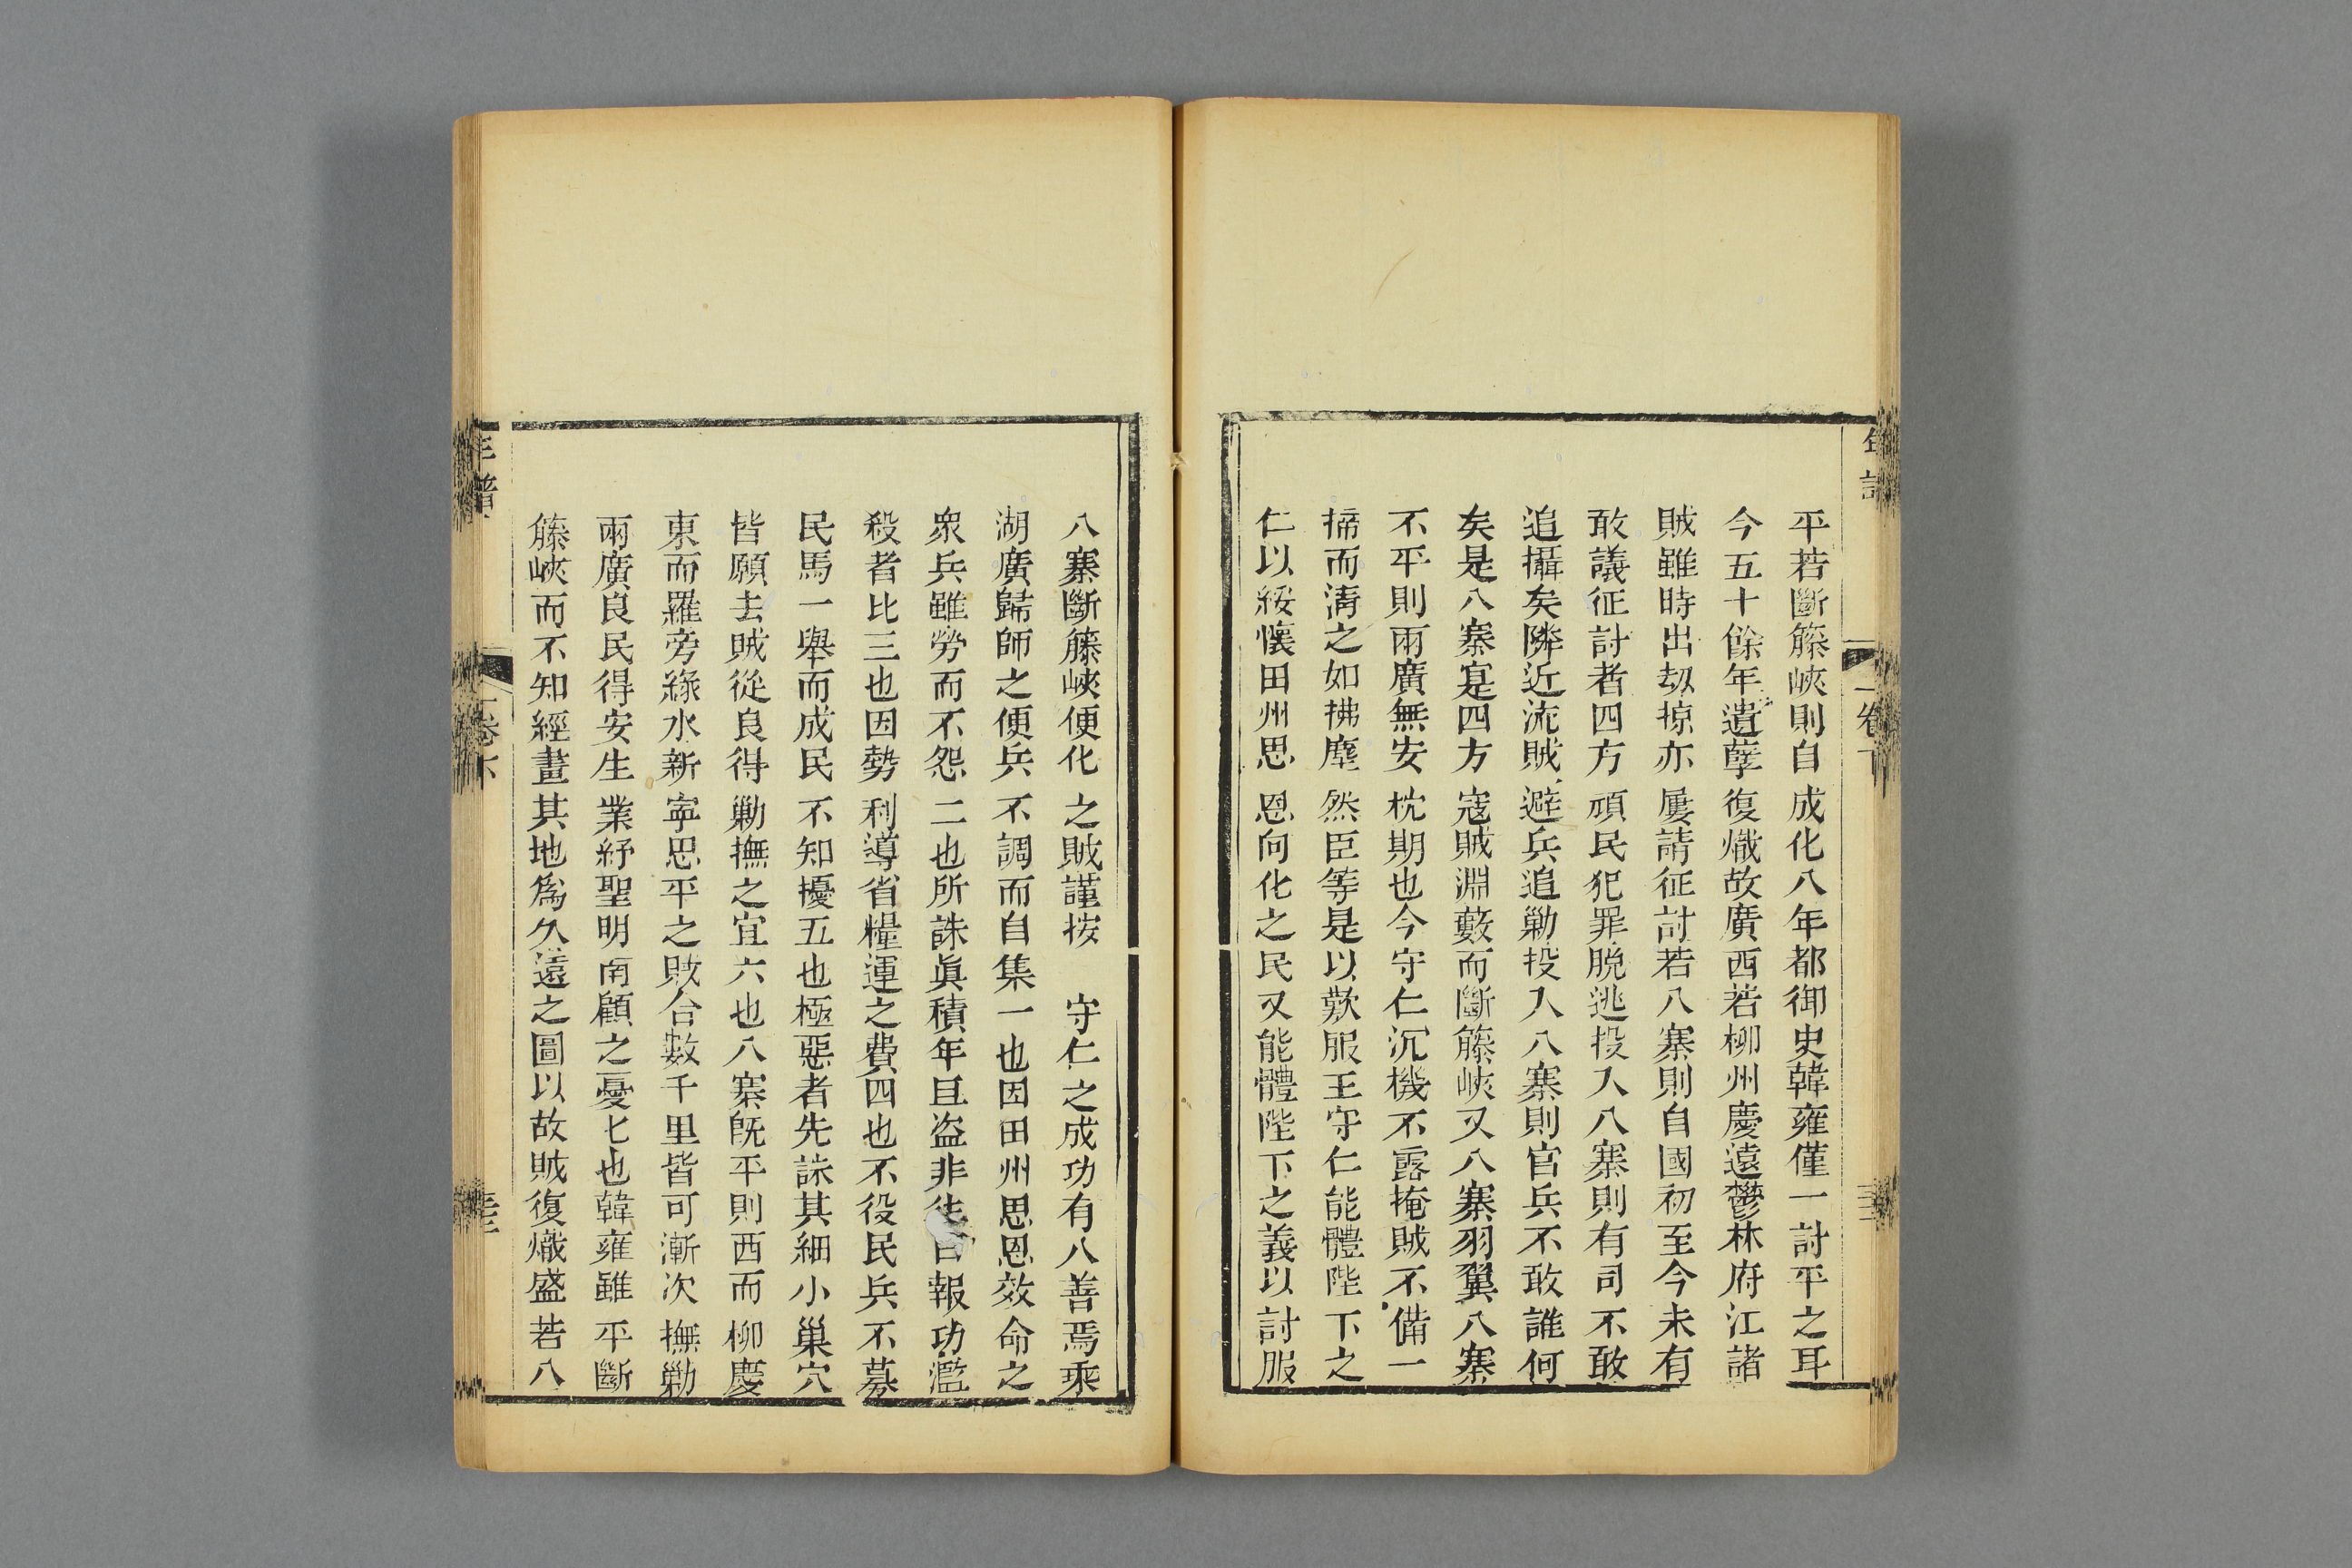 平若斷籐峽則自成化八年都御史韓雍僅一討平之耳
今五十餘年遺孽復熾故廣西若柳州慶遠鬱林府江諸
賊雖時出刼掠亦屢請征討若八寨則自國初至今未有
敢議征討者四方頑民犯罪脫逃投入八寨則有司不敢
追攝矣隣近流賊避兵追勦投入八寨則官兵不敢誰何
矣是八寨寔四方寇賊淵藪而斷籐峽又八寨羽翼八寨
不平則兩廣無安枕期也今守仁沉機不露掩賊不備一
掃而淸之如拂塵然臣等是以歎服王守仁能體陛下之
仁以綏懷田州思恩向化之民又能體陛下之義以討服
年譜
卷下
八寨斷籐峽便化之賊謹按 守仁之成功有八善焉乘
湖廣歸師之便兵不調而自集一也因田州思恩效命之
衆兵雖勞而不怨二也所誅眞積年巨盗非徒報功濫
殺者比三也因勢利導省糧運之費四也不役民兵不募
民馬一舉而成民不知擾五也極惡者先誅其細小巢穴
皆願去賊從良得勦撫之宜六也八寨旣平則西而柳慶
東而羅旁綠水新寧思平之賊合數千里皆可漸次撫勦
兩廣良民得安生業紓聖明南顧之憂七也韓雍雖平斷
籐峽而不知經畫其地爲久遠之圖以故賊復熾盛若八
年譜
卷下